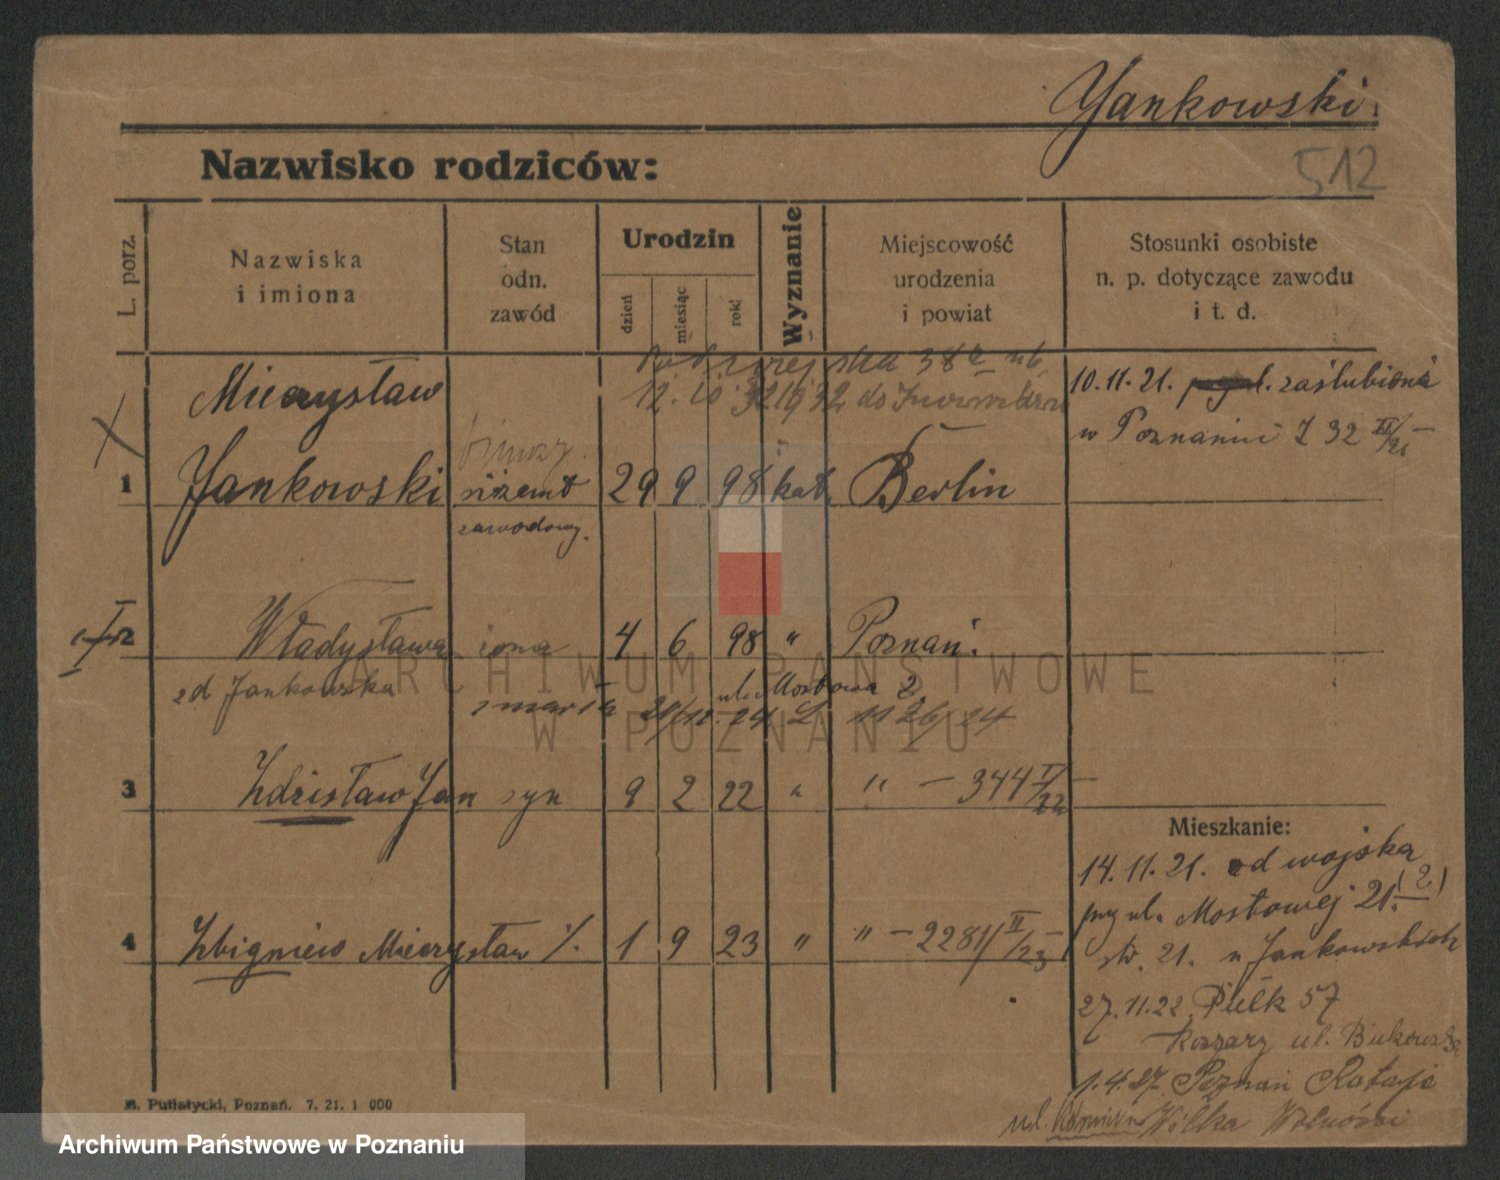 Yankowski.
512
Nazwisko rodziców:
L. porz.
Nazwiska
i imiona
Stan
odn.
zawód
Urodzin
dzień
miesiąc
rok
Wyznanie
Miejscowość
urodzenia
i powiat
Stosunki osobiste
n. p. dotyczące zawodu
i t. d.
38a
12. 10 32 1932 do
10.11.21. zaślubiona
w Poznaniu I 32
Mieczysław
1 Yankowski 29 9 98 kat. Berlin
zawodowy.
2 Władysława żona 4 6 98 " Poznań.
zd Jankowska
ul. Mostowa 2.
zmarła 24
3 Zdzisław Jan syn 9 2 22 " " — 344 I/22 —
4 Zbigniew Mieczysław /. 1 9 23 " " — 2281 II/23 —
Mieszkanie:
14.11.21. od wojska
przy ul. Mostowej 21. (2)
str. 21. u Jankowskich
27.11.22 Pułk 57
Koszary ul. Bukowska
1.4.27. Poznań Rataje
ul. Wilka Wolności
M. Putiatycki, Poznań. 7. 21. 1 000
ARCHIWUM PAŃSTWOWE
W POZNANIU
Archiwum Państwowe w Poznaniu